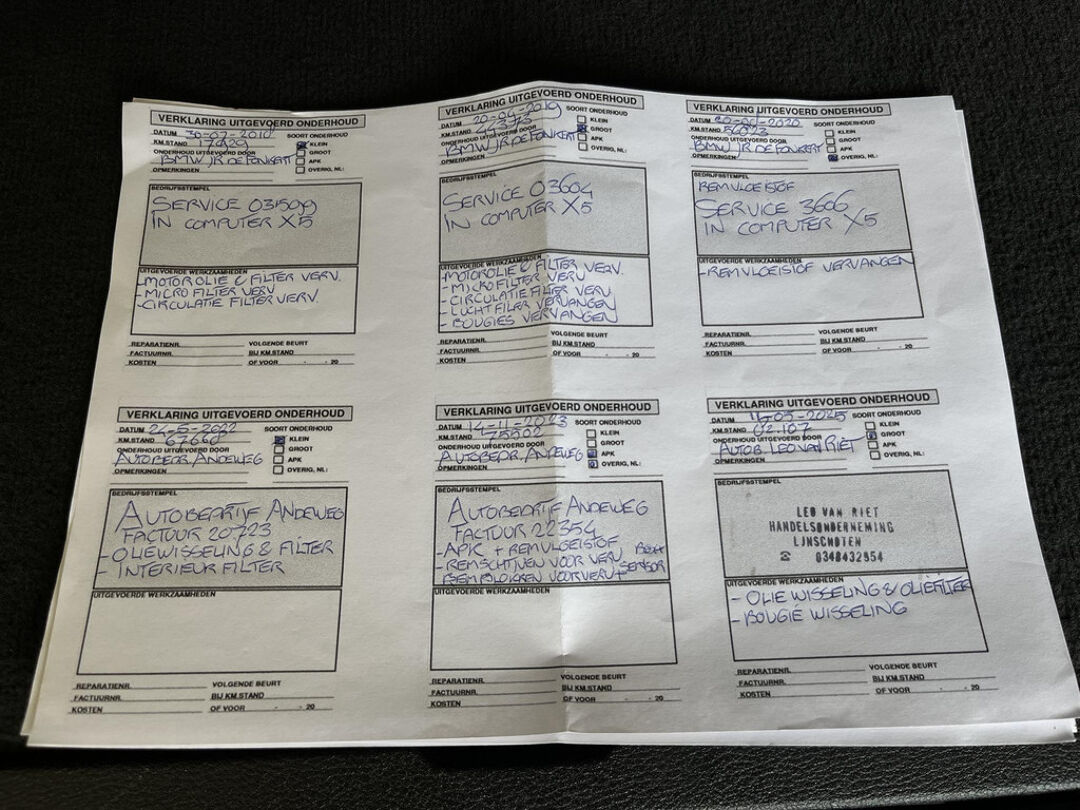 VERKLARING UITGEVOERD ONDERHOUD
DATUM 30-07-2018 SOORT ONDERHOUD
KM.STAND 17929 KLEIN
ONDERHOUD UITGEVOERD DOOR GROOT
BMW JR DE FONKERT APK
OPMERKINGEN OVERIG, NL:
BEDRIJFSSTEMPEL
SERVICE 031599
IN COMPUTER X5
UITGEVOERDE WERKZAAMHEDEN
-MOTOROLIE & FILTER VERV.
-MICROFILTER VERV
-CIRCULATIE FILTER VERV.
REPARATIENR. VOLGENDE BEURT
FACTUURNR. BIJ KM.STAND
KOSTEN OF VOOR - - 20
VERKLARING UITGEVOERD ONDERHOUD
DATUM 20-04-2019 SOORT ONDERHOUD
KM.STAND KLEIN
ONDERHOUD UITGEVOERD DOOR GROOT
BMW JR DE FONKERT APK
OPMERKINGEN OVERIG, NL:
BEDRIJFSSTEMPEL
SERVICE 03604
IN COMPUTER X5
UITGEVOERDE WERKZAAMHEDEN
-MOTOROLIE & FILTER VERV.
-MICROFILTER VERV
-CIRCULATIE FILTER VERV
-LUCHTFILER VERVANGEN
-BOUGIES VERVANGEN
REPARATIENR. VOLGENDE BEURT
FACTUURNR. BIJ KM.STAND
KOSTEN OF VOOR - - 20
VERKLARING UITGEVOERD ONDERHOUD
DATUM SOORT ONDERHOUD
KM.STAND 56023 KLEIN
ONDERHOUD UITGEVOERD DOOR GROOT
BMW JR DE FONKERT APK
OPMERKINGEN OVERIG, NL:
BEDRIJFSSTEMPEL
REMVLOEISTOF
SERVICE 3606
IN COMPUTER X5
UITGEVOERDE WERKZAAMHEDEN
-REMVLOEISTOF VERVANGEN
REPARATIENR. VOLGENDE BEURT
FACTUURNR. BIJ KM.STAND
KOSTEN OF VOOR - - 20
VERKLARING UITGEVOERD ONDERHOUD
DATUM 24-5-2022 SOORT ONDERHOUD
KM.STAND 67668 KLEIN
ONDERHOUD UITGEVOERD DOOR GROOT
AUTOBEDR. ANDEWEG APK
OPMERKINGEN OVERIG, NL:
BEDRIJFSSTEMPEL
AUTOBEDRIJF ANDEWEG
FACTUUR 20723
-OLIEWISSELING & FILTER
- INTERIEUR FILTER
UITGEVOERDE WERKZAAMHEDEN
REPARATIENR. VOLGENDE BEURT
FACTUURNR. BIJ KM.STAND
KOSTEN OF VOOR - - 20
VERKLARING UITGEVOERD ONDERHOUD
DATUM 14-11-2023 SOORT ONDERHOUD
KM.STAND 75502 KLEIN
ONDERHOUD UITGEVOERD DOOR GROOT
AUTOBEDR. ANDEWEG APK
OPMERKINGEN OVERIG, NL:
BEDRIJFSSTEMPEL
AUTOBEDRIJF ANDEWEG
FACTUUR 22354
-APK + REMVLOEISTOF
-REMSCHIJVEN VOOR VERV
REMBLOKKEN VOOR VERV + SENSOR
UITGEVOERDE WERKZAAMHEDEN
REPARATIENR. VOLGENDE BEURT
FACTUURNR. BIJ KM.STAND
KOSTEN OF VOOR - - 20
VERKLARING UITGEVOERD ONDERHOUD
DATUM 16-05-2025 SOORT ONDERHOUD
KM.STAND KLEIN
ONDERHOUD UITGEVOERD DOOR GROOT
AUTOB. LEO VAN RIET APK
OPMERKINGEN OVERIG, NL:
BEDRIJFSSTEMPEL
LEO VAN RIET
HANDELSONDERNEMING
LINSCHOTEN
☎ 0348432954
UITGEVOERDE WERKZAAMHEDEN
- OLIE WISSELING & OLIEFILTER
- BOUGIE WISSELING
REPARATIENR. VOLGENDE BEURT
FACTUURNR. BIJ KM.STAND
KOSTEN OF VOOR - - 20